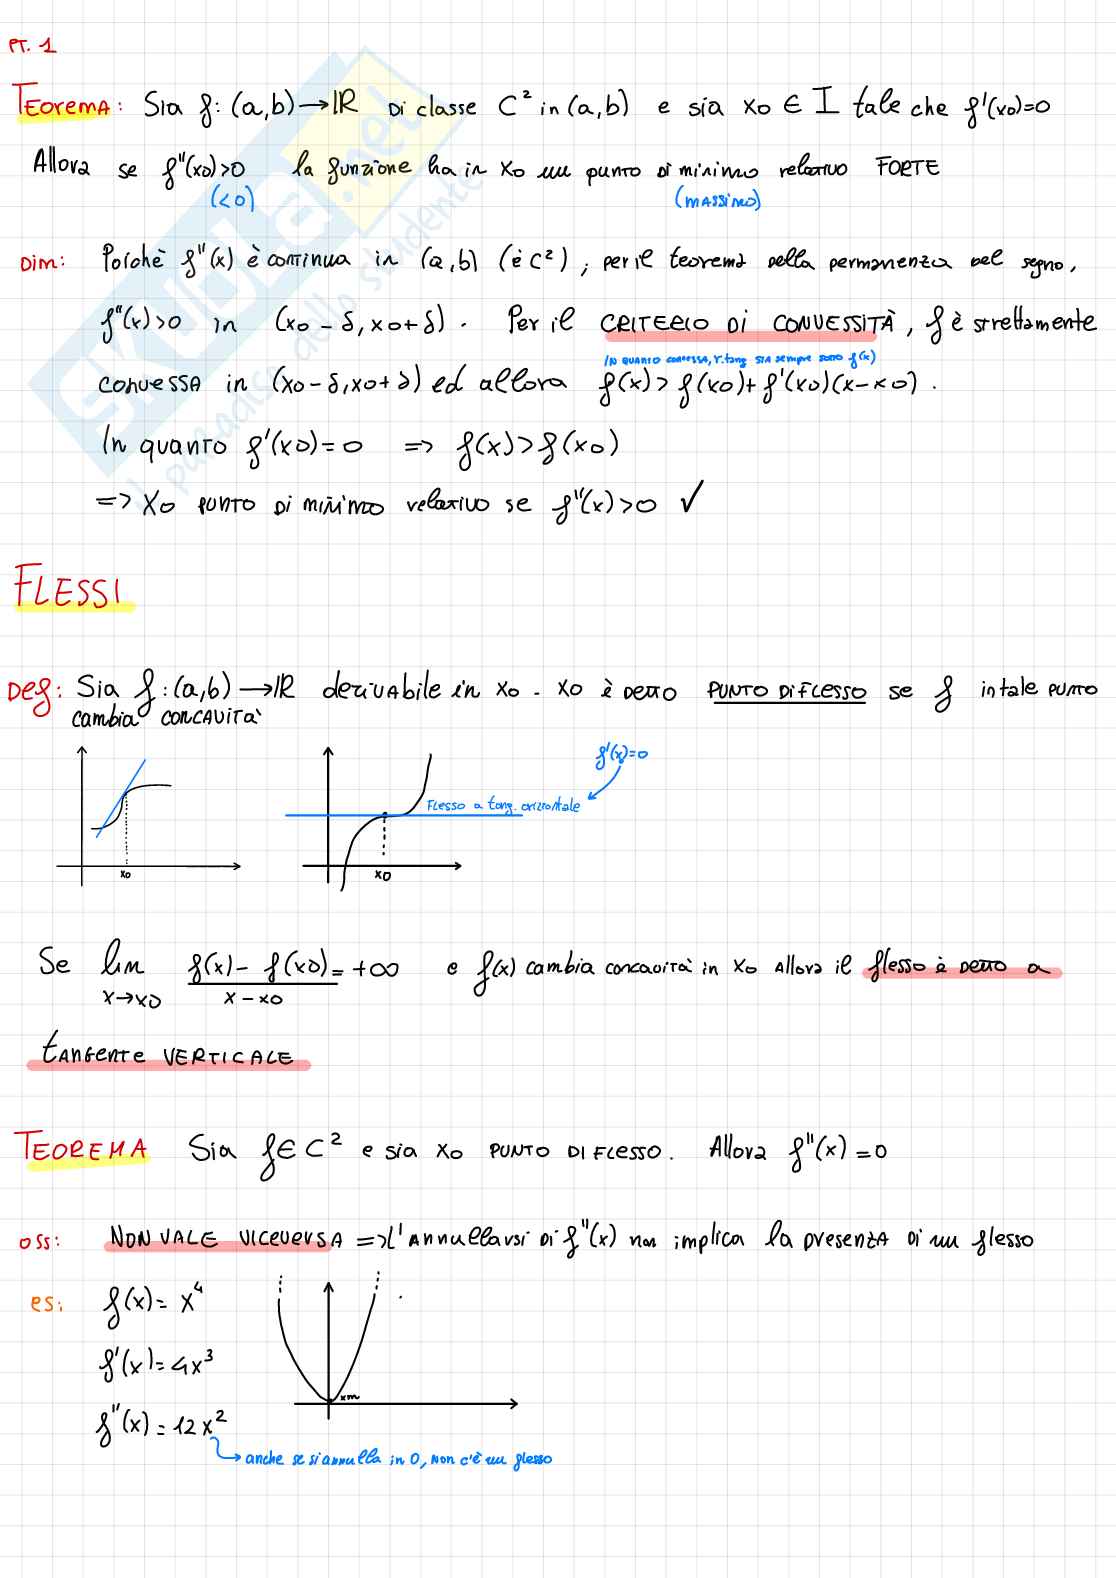 PT. 1
Teorema: Sia f: (a,b) → ℝ di classe C² in (a,b) e sia x0 ∈ I tale che f'(x0)=0
Allora se f''(x0)>0 la funzione ha in x0 un punto di minimo relativo FORTE
(<0) (MASSIMO)
Dim: Poiché f''(x) è continua in (a,b) (è C²), per il teorema della permanenza del segno,
f''(x)>0 in (x0-δ, x0+δ). Per il CRITERIO DI CONVESSITÀ, f è strettamente
IN QUANTO CONVESSA, r.tang STA sempre sotto f(x)
convessa in (x0-δ, x0+δ) ed allora f(x)>f(x0)+f'(x0)(x-x0).
In quanto f'(x0)=0 => f(x)>f(x0)
=> x0 punto di minimo relativo se f''(x)>0 ✓
FLESSI
Def: Sia f: (a,b) → ℝ derivabile in x0. x0 è detto PUNTO DI FLESSO se f in tale punto
cambia concavità
f'(x)=0
Flesso a tang. orizzontale
x0
x0
Se lim f(x)-f(x0) = +∞ e f(x) cambia concavità in x0 Allora il flesso è detto a
x→x0 x-x0
tangente VERTICALE
TEOREMA Sia f∈C² e sia x0 PUNTO DI FLESSO. Allora f''(x)=0
oss: NON VALE VICEVERSA => L'annullarsi di f''(x) non implica la presenza di un flesso
es: f(x)= x⁴
f'(x)=4x³
xm
f''(x)=12x²
anche se si annulla in 0, non c'è un flesso
SKUOLA.net
il paradiso dello studente